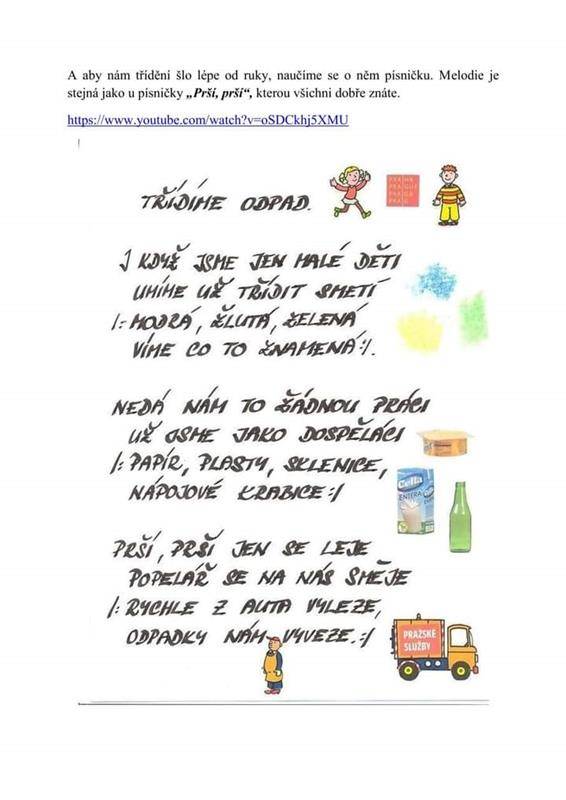 A aby nám třídění šlo lépe od ruky, naučíme se o něm písničku. Melodie je
stejná jako u písničky „Prší, prší“, kterou všichni dobře znáte.
https://www.youtube.com/watch?v=oSDCkhj5XMU
TŘÍDÍME ODPAD.
PRA HA
PRA GUE
PRA GA
PRA G
I KDYŽ JSME JEN MALÉ DĚTI
UMÍME UŽ TŘÍDIT SMETÍ
/: MODRÁ, ŽLUTÁ, ZELENÁ
VÍME CO TO ZNAMENÁ :/.
NEDÁ NÁM TO ŽÁDNOU PRÁCI
UŽ JSME JAKO DOSPĚLÁCI
/: PAPÍR, PLASTY, SKLENICE,
NÁPOJOVÉ KRABICE :/
Cella
ENTERA
PRŠÍ, PRŠÍ JEN SE LEJE
POPELÁŘ SE NA NÁS SMĚJE
/: RYCHLE Z AUTA VYLEZE,
ODPADKY NÁM VYVEZE. :/
PRAŽSKÉ
SLUŽBY